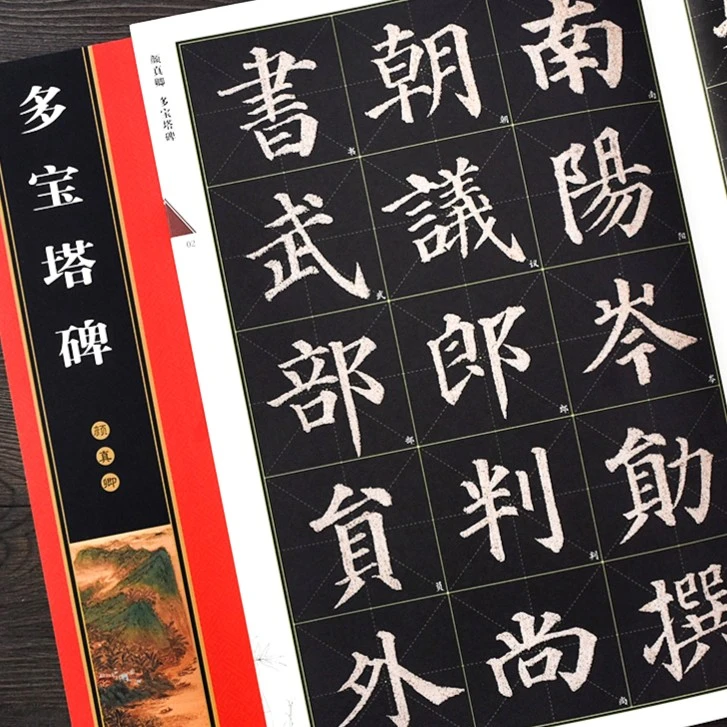 多宝塔碑
颜真卿
颜真卿 多宝塔碑
02
南陽岑勛撰
朝議郎判尚
書武部貟外
南
阳
岑
朝
议
郎
判
尚
书
武
部
员